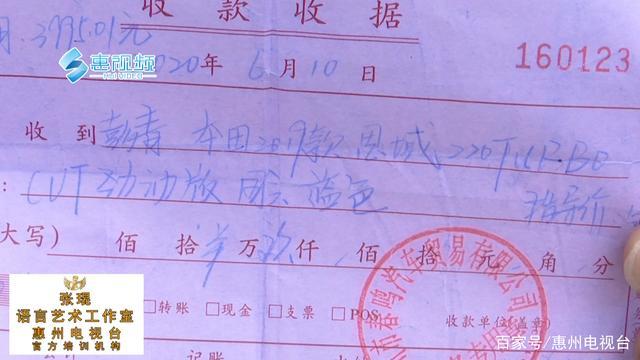 收款收据
月3995.01元
惠视频
HUI VIDEO
2020年6月10日
160123
收到 本田2019款思域220TURBO
CVT劲动版 蓝色 指导价
大写) 佰 拾 万 仟 佰 拾 元 角 分
□转账 □现金 □支票 □POS
收款单位(盖章)
汽车贸易有限公司
张琨
语言艺术工作室
惠州电视台
官方培训机构
记账
百家号/惠州电视台